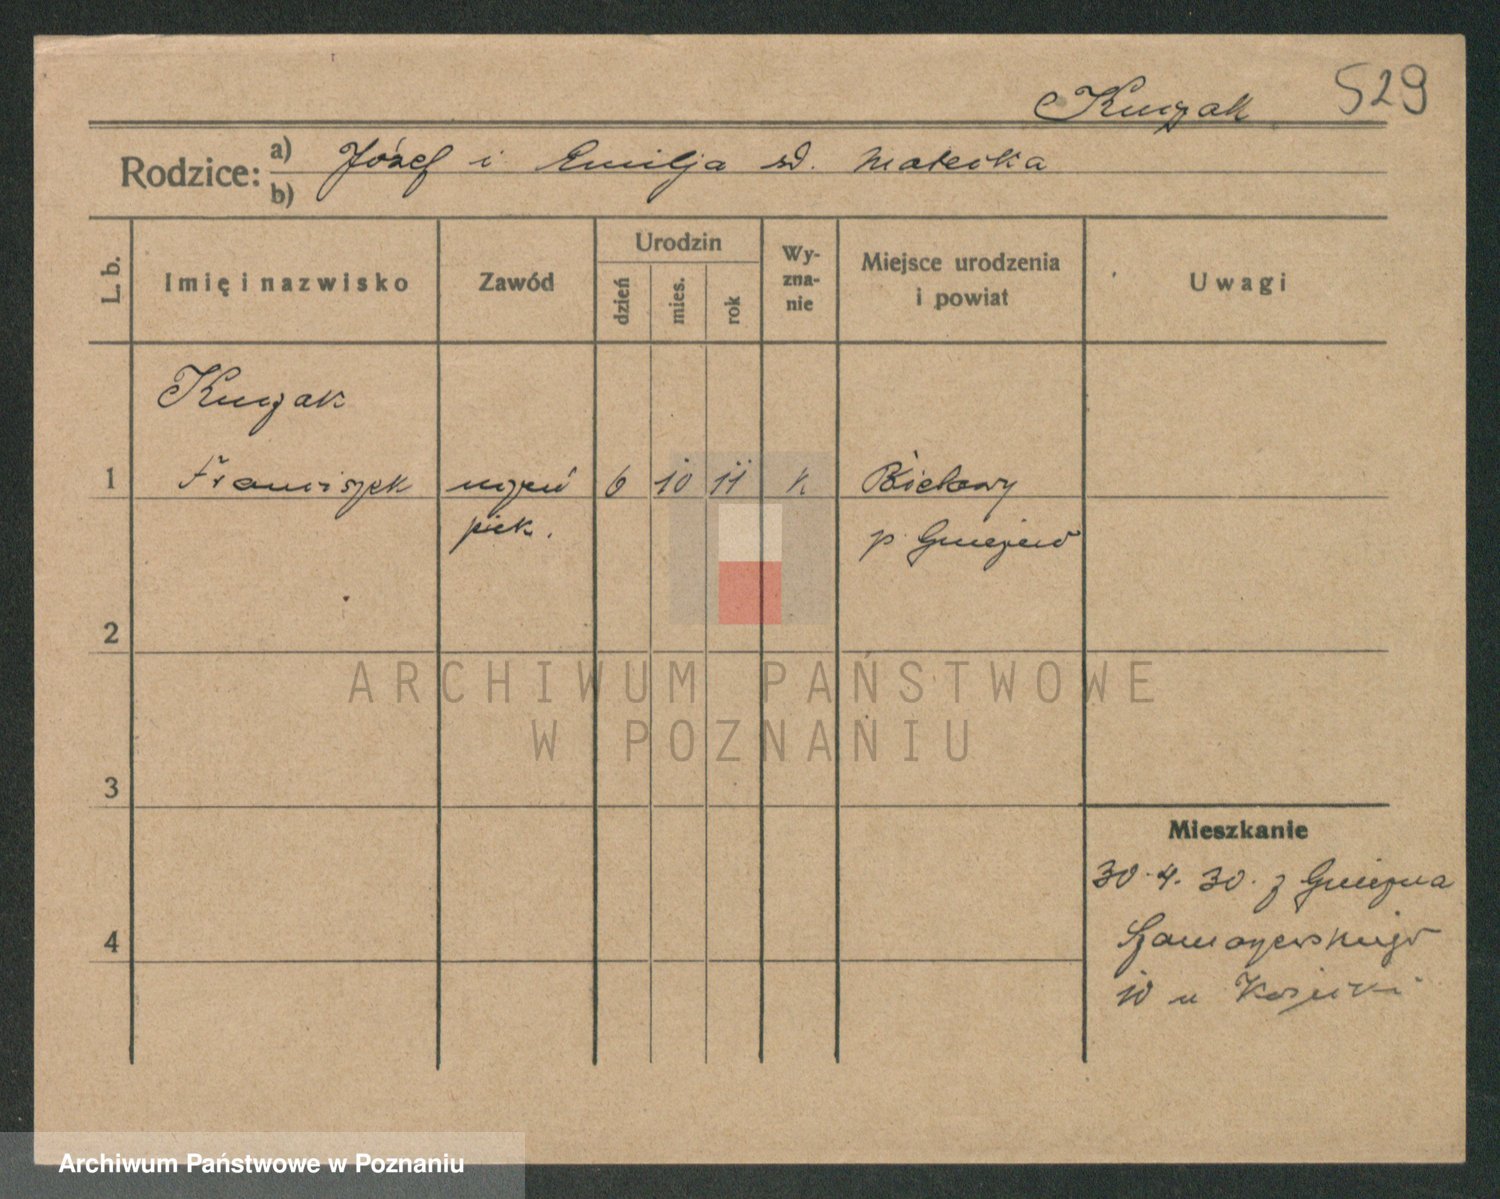 529
Kuczak
Rodzice: a) Józef i Emilja zd. Matecka
b)
L. b.
Imię i nazwisko
Zawód
Urodzin
dzień
mies.
rok
Wy-
zna-
nie
Miejsce urodzenia
i powiat
Uwagi
Kuczak
1 Franciszek uczeń 6 10 11 k
piek. p. Gniezno
2
3
4
Mieszkanie
30.4.30. z Gniezna
10 u
ARCHIWUM PAŃSTWOWE
W POZNANIU
Archiwum Państwowe w Poznaniu